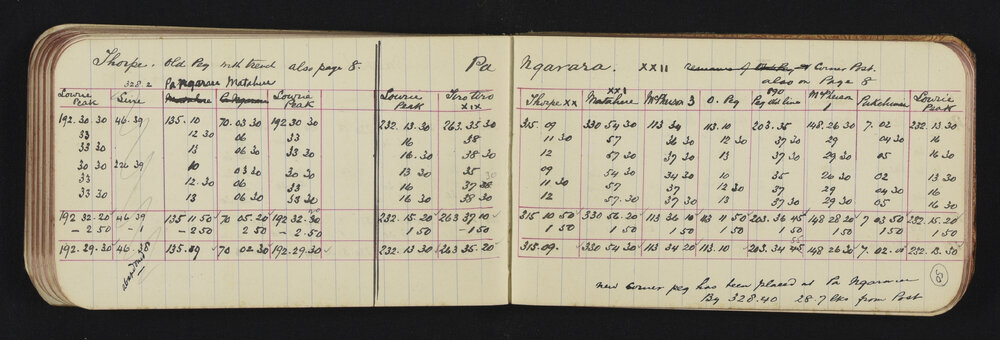 Thorpe. Old Peg  also page 8. Pa Ngarara. XXII remains of Old Peg at Corner Post.
also on Page 8
328.2 Pa Ngarara Matahure
Lowrie Peak Lowrie Peak Lowrie Peak XIX Thorpe XX Matahure XXI McPherson 3 O. Peg 890 Peg old line McPherson Pukehinau Lowrie Peak
192. 30 30 46. 39 135. 10 70. 03 30 192 30 30 232. 13. 30 263. 35. 30 315. 09 330 54. 30 113 34 113. 10 203. 35 148. 26 30 7. 02 232. 13 30
33 12 30 06 33 16 38 11. 30 57 36 30 12 30 37 30 29 04 30 16
33 30 13 06 30 33 30 16. 30 38 30 12 57 30 37 30 13 37 30 29 30 05 16 30
30 30 226 39 10 03 30 30 30 13 30 35 30 09 54 30 34 30 10 35 26 30 02 13 30
33 12. 30 06 33 16 37 38 11 30 57 37 12 30 37 29 04 30 16
33 30 13 06 30 33 30 16 30 38 30 12 57. 30 37 30 13 37 30 29 30 05 16 30
192 32. 20 46 39 135 11 50 70 05. 20 192 32. 30 232. 15. 20 263 37 10 315 10 50 330 56. 20 113 36 10 113 11 50 203. 36 45 148 28 20 7 03 50 232. 15. 20
- 2 50 - 1 2 50 2 50 - 2. 50 1 50 - 1 50 1 50 1 50 1 50 1 50 1 50 1 50 1 50 1 50
192. 29. 30 46. 38 135. 09 70 02 30 192. 29. 30 232. 13. 30 263 35. 20 315. 09. 330 54 30 113 34 20 113. 10 203. 34 45 148 26 30 7. 02. 232. 13. 30
58
new corner peg has been placed at Pa Ngarara
By 328. 40 28. 7 lks from Post